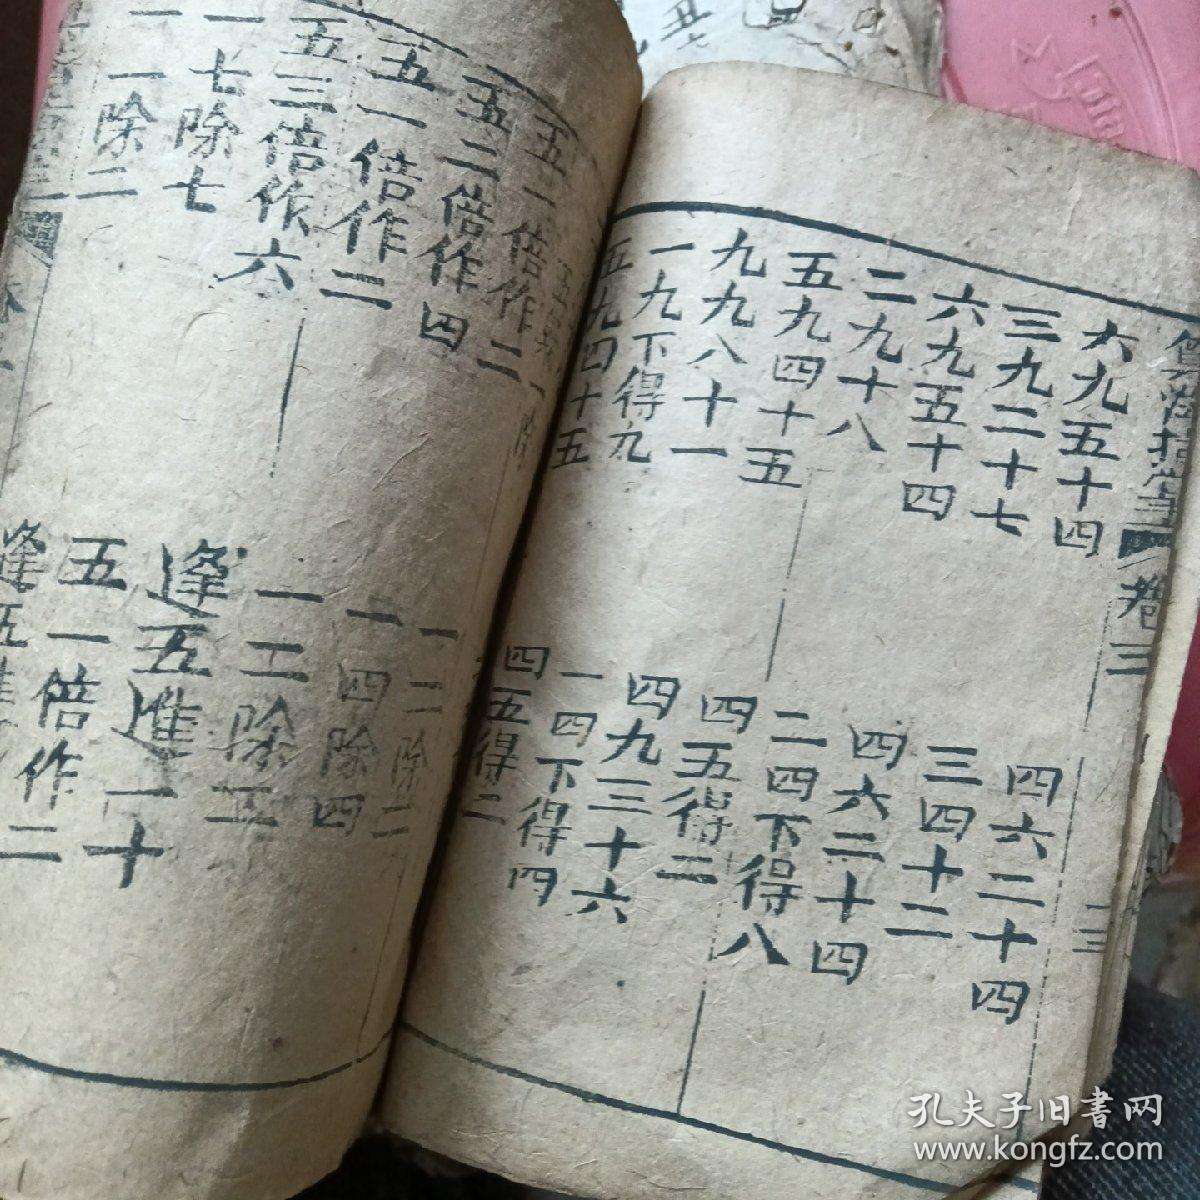 卷三
六九五十四
三九二十七
六九五十四
二九十八
五九四十五
九九八十一
一九下得九
五九四十五
四六二十四
三四十二
四六二十四
二四下得八
四五得二
四九三十六
一四下得四
四五得二
十三
五一倍作二
五二倍作四
五一倍作二
五三倍作六
一七除七
一一除二
一二除二
一四除四
一二除五
逢五進一十
五一倍作二
孔夫子旧書网
www.kongfz.com